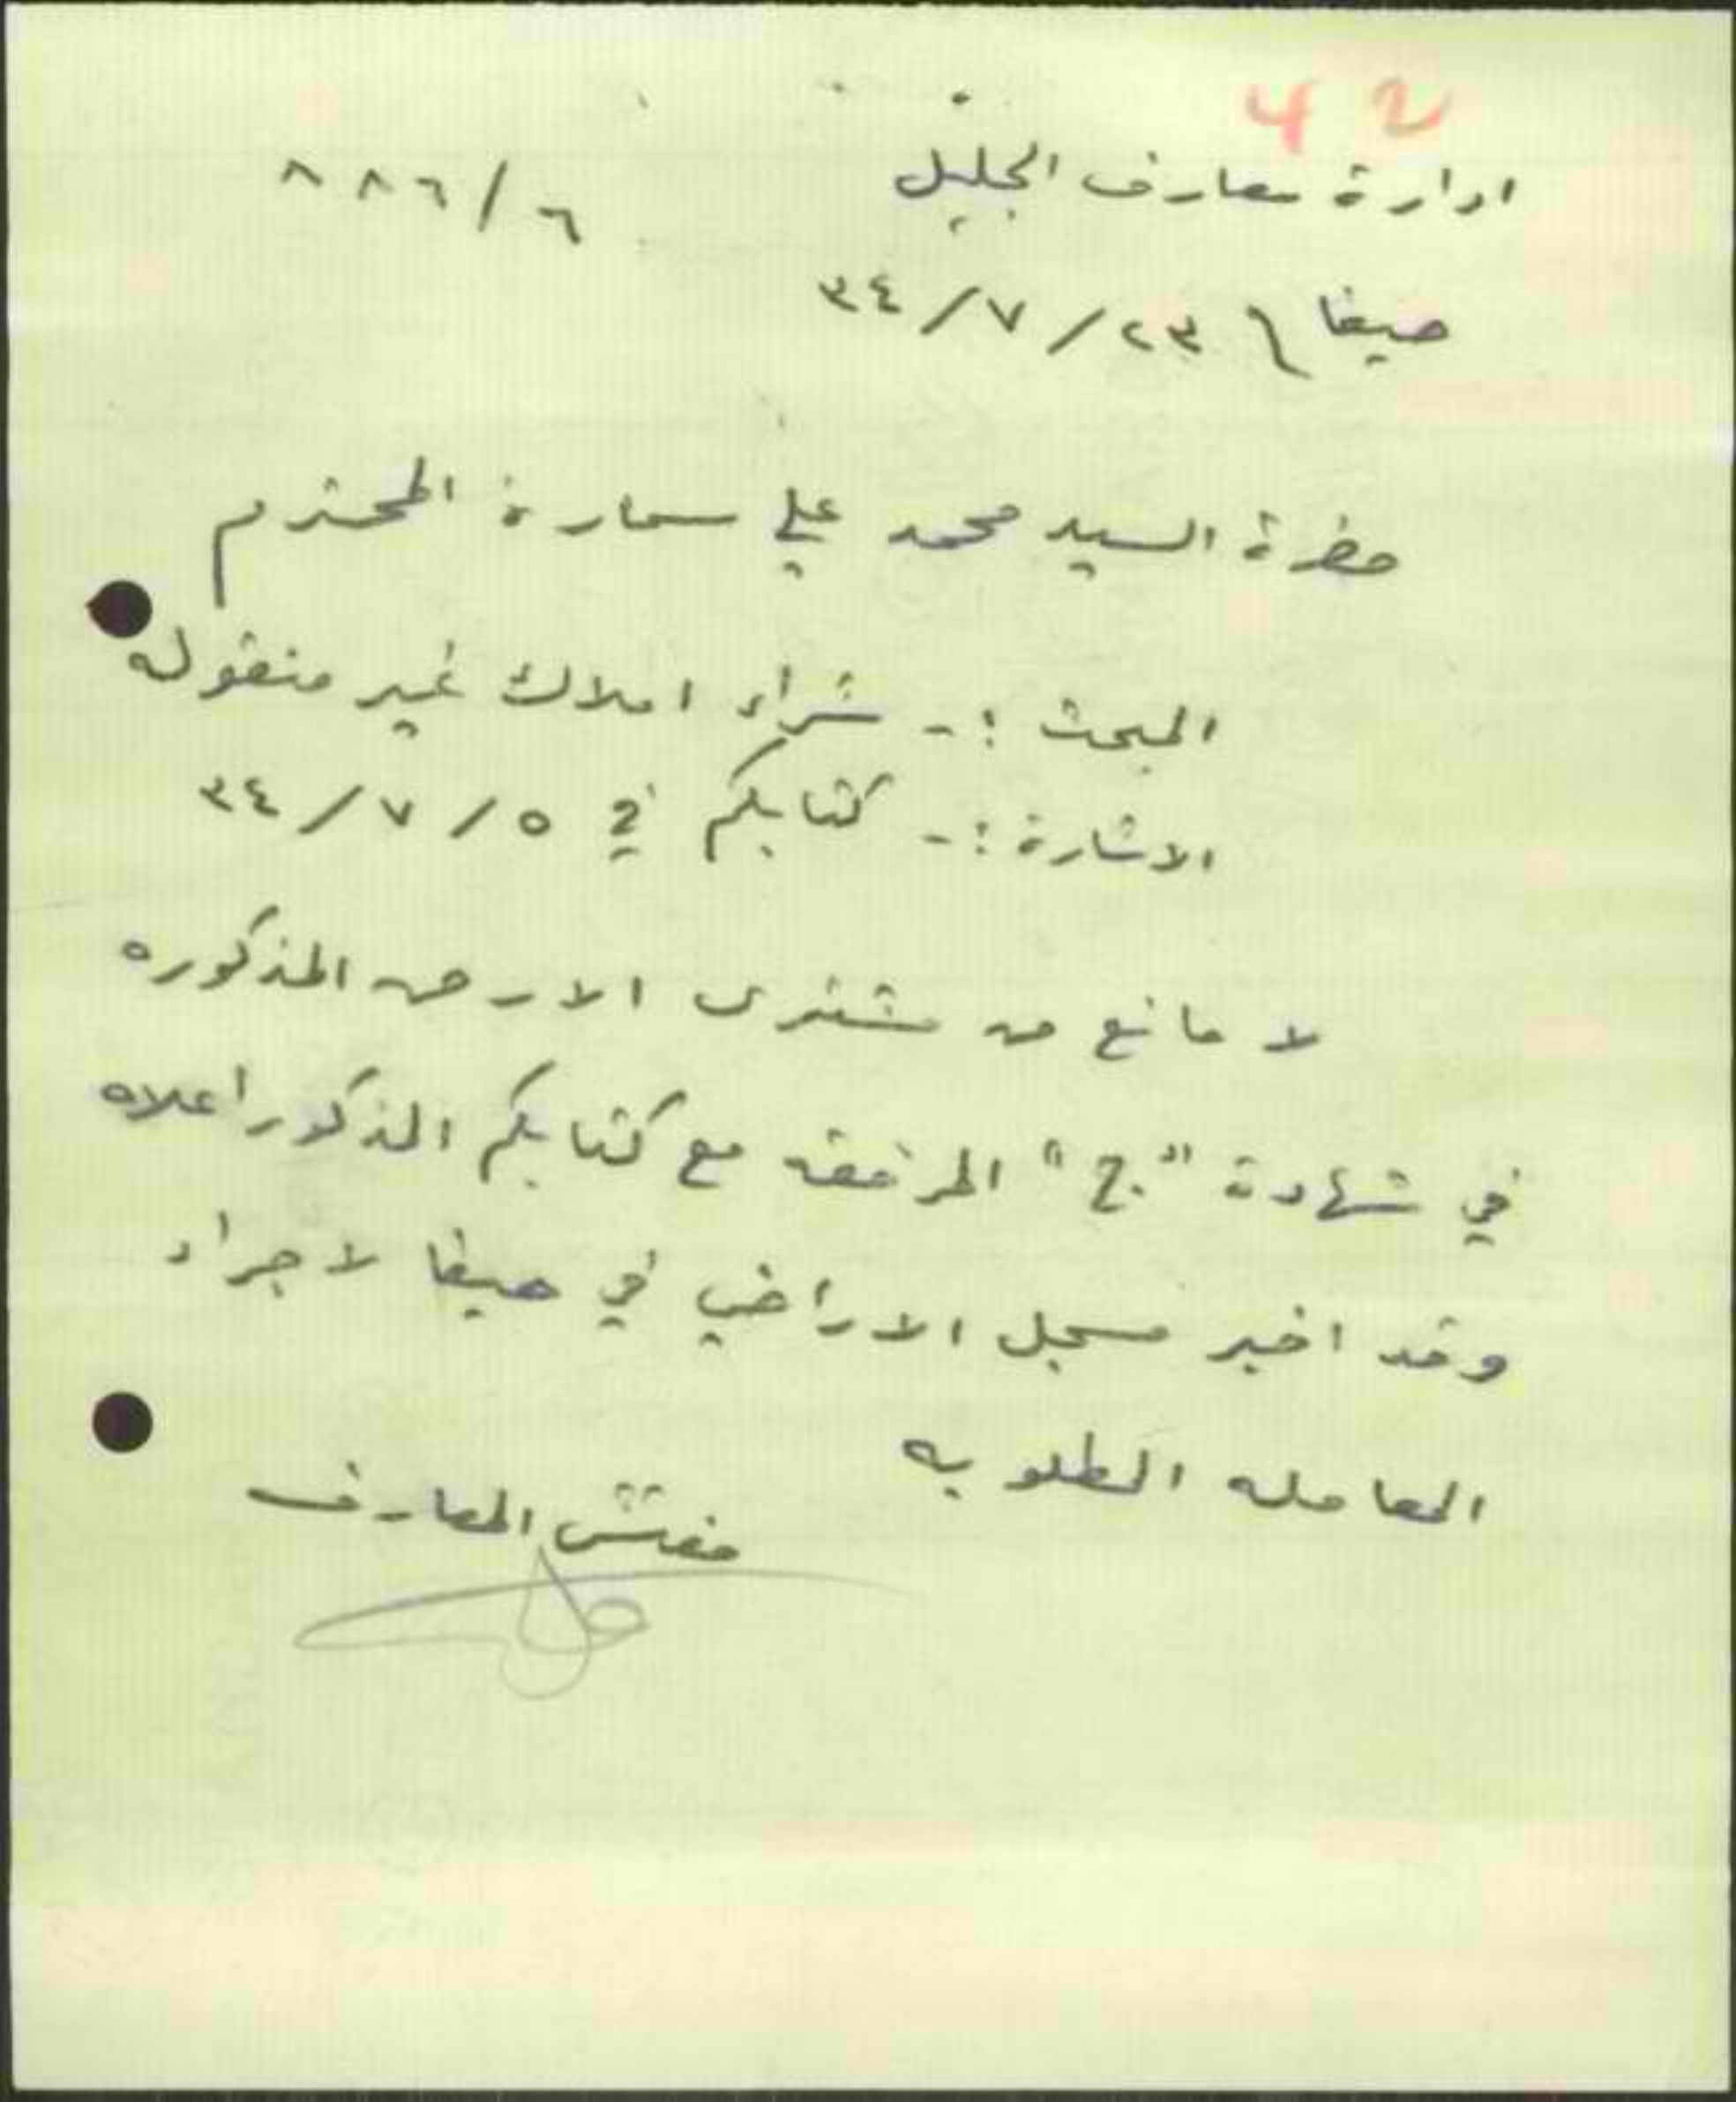 42
ادارة معارف الجليل
٨٨٦/٦
حيفا \ ٢٣/٧/٣٤
حضرة السيد محمد علي سمارة المحترم
المبحث :ـ شراء املاك غير منقوله
الاشارة :ـ كتابكم في ٥/٧/٣٤
لا مانع من مشترى الارض المذكوره
في شهادة "ج" المرفقه مع كتابكم المذكور اعلاه
وقد اخبر مسجل الاراضي في حيفا لاجراء
المعامله المطلوبه
مفتش المعارف